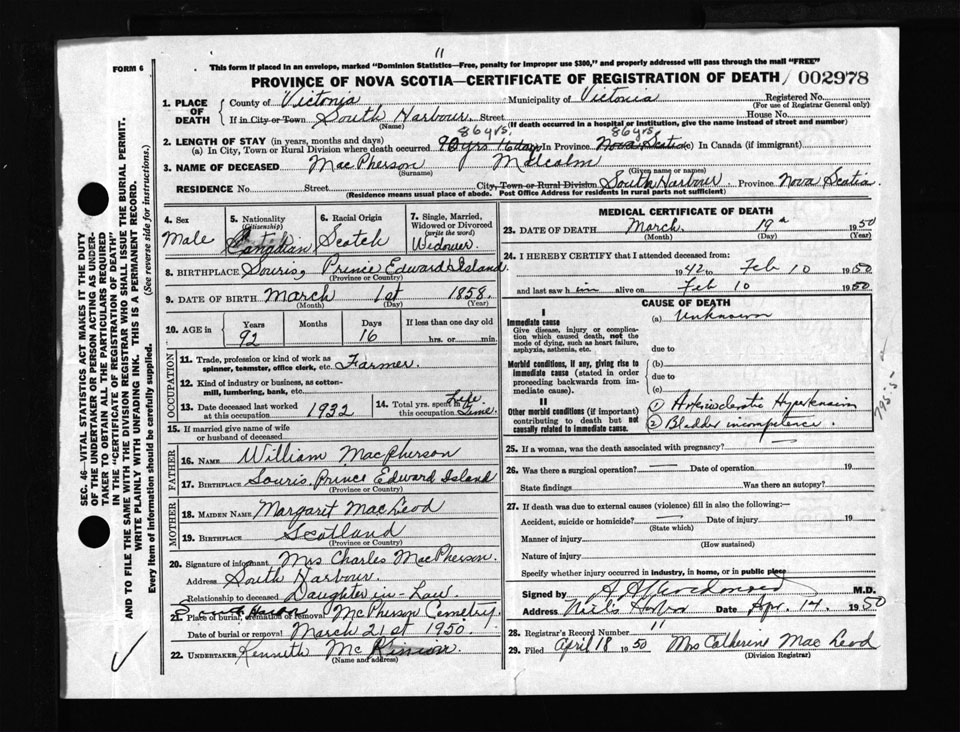 11
FORM 6
This form if placed in an envelope, marked "Dominion Statistics—Free, penalty for improper use $300," and properly addressed will pass through the mail "FREE"
PROVINCE OF NOVA SCOTIA—CERTIFICATE OF REGISTRATION OF DEATH / 002978
1. PLACE OF DEATH { County of Victoria Municipality of Victoria Registered No. (For use of Registrar General only)
If in City or Town South Harbour Street House No.
(Name) (If death occurred in a hospital or institution, give the name instead of street and number)
2. LENGTH OF STAY (in years, months and days) 86 yrs. 86 yrs.
(a) In City, Town or Rural Division where death occurred 90 yrs 16 days In Province Nova Scotia (c) In Canada (if immigrant)
3. NAME OF DECEASED MacPherson Malcolm
(Surname) (Given name or names)
RESIDENCE No. Street City, Town or Rural Division South Harbour Province Nova Scotia
(Residence means usual place of abode. Post Office Address for residents in rural parts not sufficient)
4. Sex Male
5. Nationality (Citizenship) Canadian
6. Racial Origin Scotch
7. Single, Married, Widowed or Divorced (write the word) Widower
8. BIRTHPLACE Souris, Prince Edward Island
(Province or Country)
9. DATE OF BIRTH March 1st 1858
(Month) (Day) (Year)
10. AGE in Years 92 Months Days 16 If less than one day old hrs. or min.
OCCUPATION
11. Trade, profession or kind of work as spinner, teamster, office clerk, etc. Farmer
12. Kind of industry or business, as cotton-mill, lumbering, bank, etc.
13. Date deceased last worked at this occupation 1932
14. Total yrs. spent in this occupation Life Time
15. If married give name of wife or husband of deceased
FATHER
16. NAME William MacPherson
17. BIRTHPLACE Souris Prince Edward Island
(Province or Country)
MOTHER
18. MAIDEN NAME Margarit MacLeod
19. BIRTHPLACE Scotland
(Province or Country)
20. Signature of informant Mrs Charles MacPherson.
Address South Harbour.
Relationship to deceased Daughter in-Law
21. Place of burial, cremation or removal McPherson Cemetry
Date of burial or removal March 21st 1950.
22. UNDERTAKER Kenneth Mc
(Name and address)
MEDICAL CERTIFICATE OF DEATH
23. DATE OF DEATH March 19 1950
(Month) (Day) (Year)
24. I HEREBY CERTIFY that I attended deceased from:
1942 to Feb 10 1950
and last saw him alive on Feb 10 1950
CAUSE OF DEATH
I
Immediate cause
Give disease, injury or complication which caused death, not the mode of dying, such as heart failure, asphyxia, asthenia, etc.
(a) Unknown
due to
Morbid conditions, if any, giving rise to immediate cause (stated in order proceeding backwards from immediate cause).
(b)
due to
(c)
II
Other morbid conditions (if important) contributing to death but not causally related to immediate cause.
1 Arteriosclerotic Hypertension
2 Bladder incompetence.
795.5
25. If a woman, was the death associated with pregnancy?
26. Was there a surgical operation? Date of operation 19
State findings Was there an autopsy?
27. If death was due to external causes (violence) fill in also the following:—
Accident, suicide or homicide? Date of injury 19
(State which)
Manner of injury
(How sustained)
Nature of injury
Specify whether injury occurred in industry, in home, or in public place
Signed by M.D.
Address Neil's Harbor Date Apr. 14. 1950
28. Registrar's Record Number 11
29. Filed April 18 1950 Mrs Catherine MacLeod
(Division Registrar)
SEC. 46—VITAL STATISTICS ACT MAKES IT THE DUTY OF THE UNDERTAKER OR PERSON ACTING AS UNDERTAKER TO OBTAIN ALL THE PARTICULARS REQUIRED IN THE "CERTIFICATE OF REGISTRATION OF DEATH" AND TO FILE THE SAME WITH THE DIVISION REGISTRAR WHO SHALL ISSUE THE BURIAL PERMIT.
WRITE PLAINLY WITH UNFADING INK. THIS IS A PERMANENT RECORD.
Every item of information should be carefully supplied. (See reverse side for instructions.)